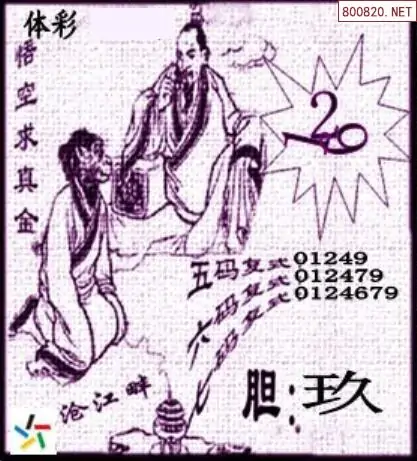 800820.NET
体彩
悟空求真金
249
五码复式01249
六码复式012479
七码复式0124679
沧江畔
胆:玖